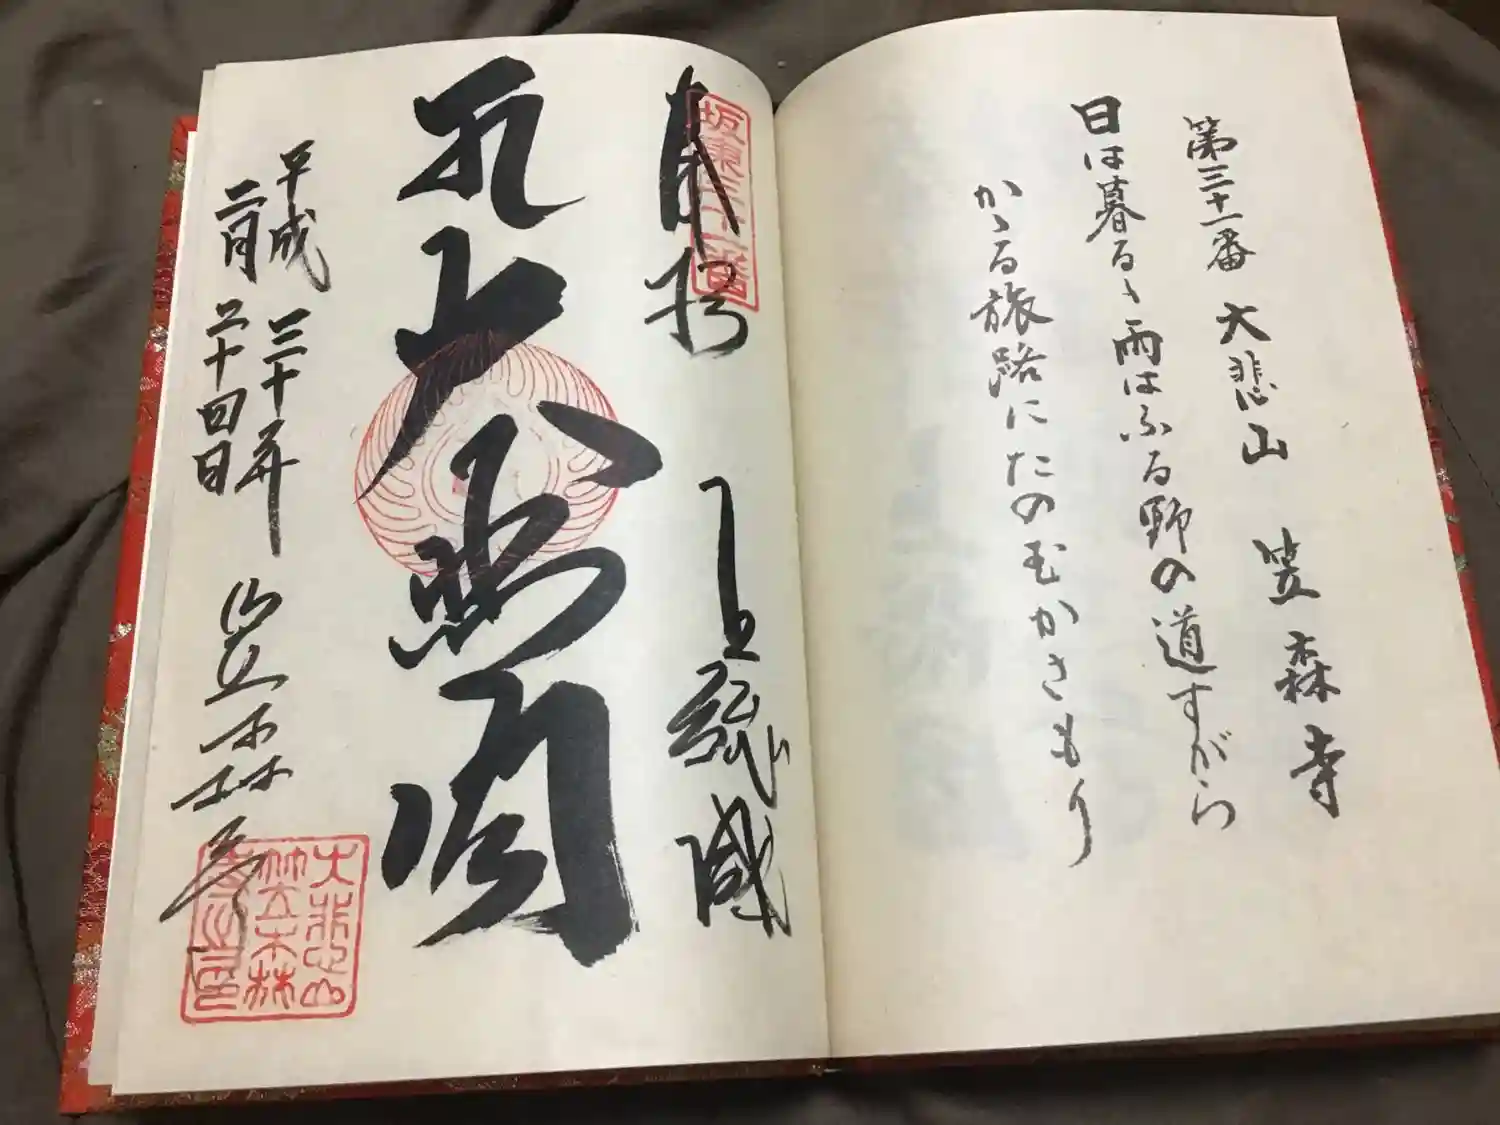 第三十一番 大悲山 笠森寺
日は暮るゝ雨はふる野の道すがら
かゝる旅路にたのむかさもり
奉拝 上総國
坂東三十一番
大悲閣
平成三十年
二月二十四日
笠森寺
大悲山
笠森
寺之印